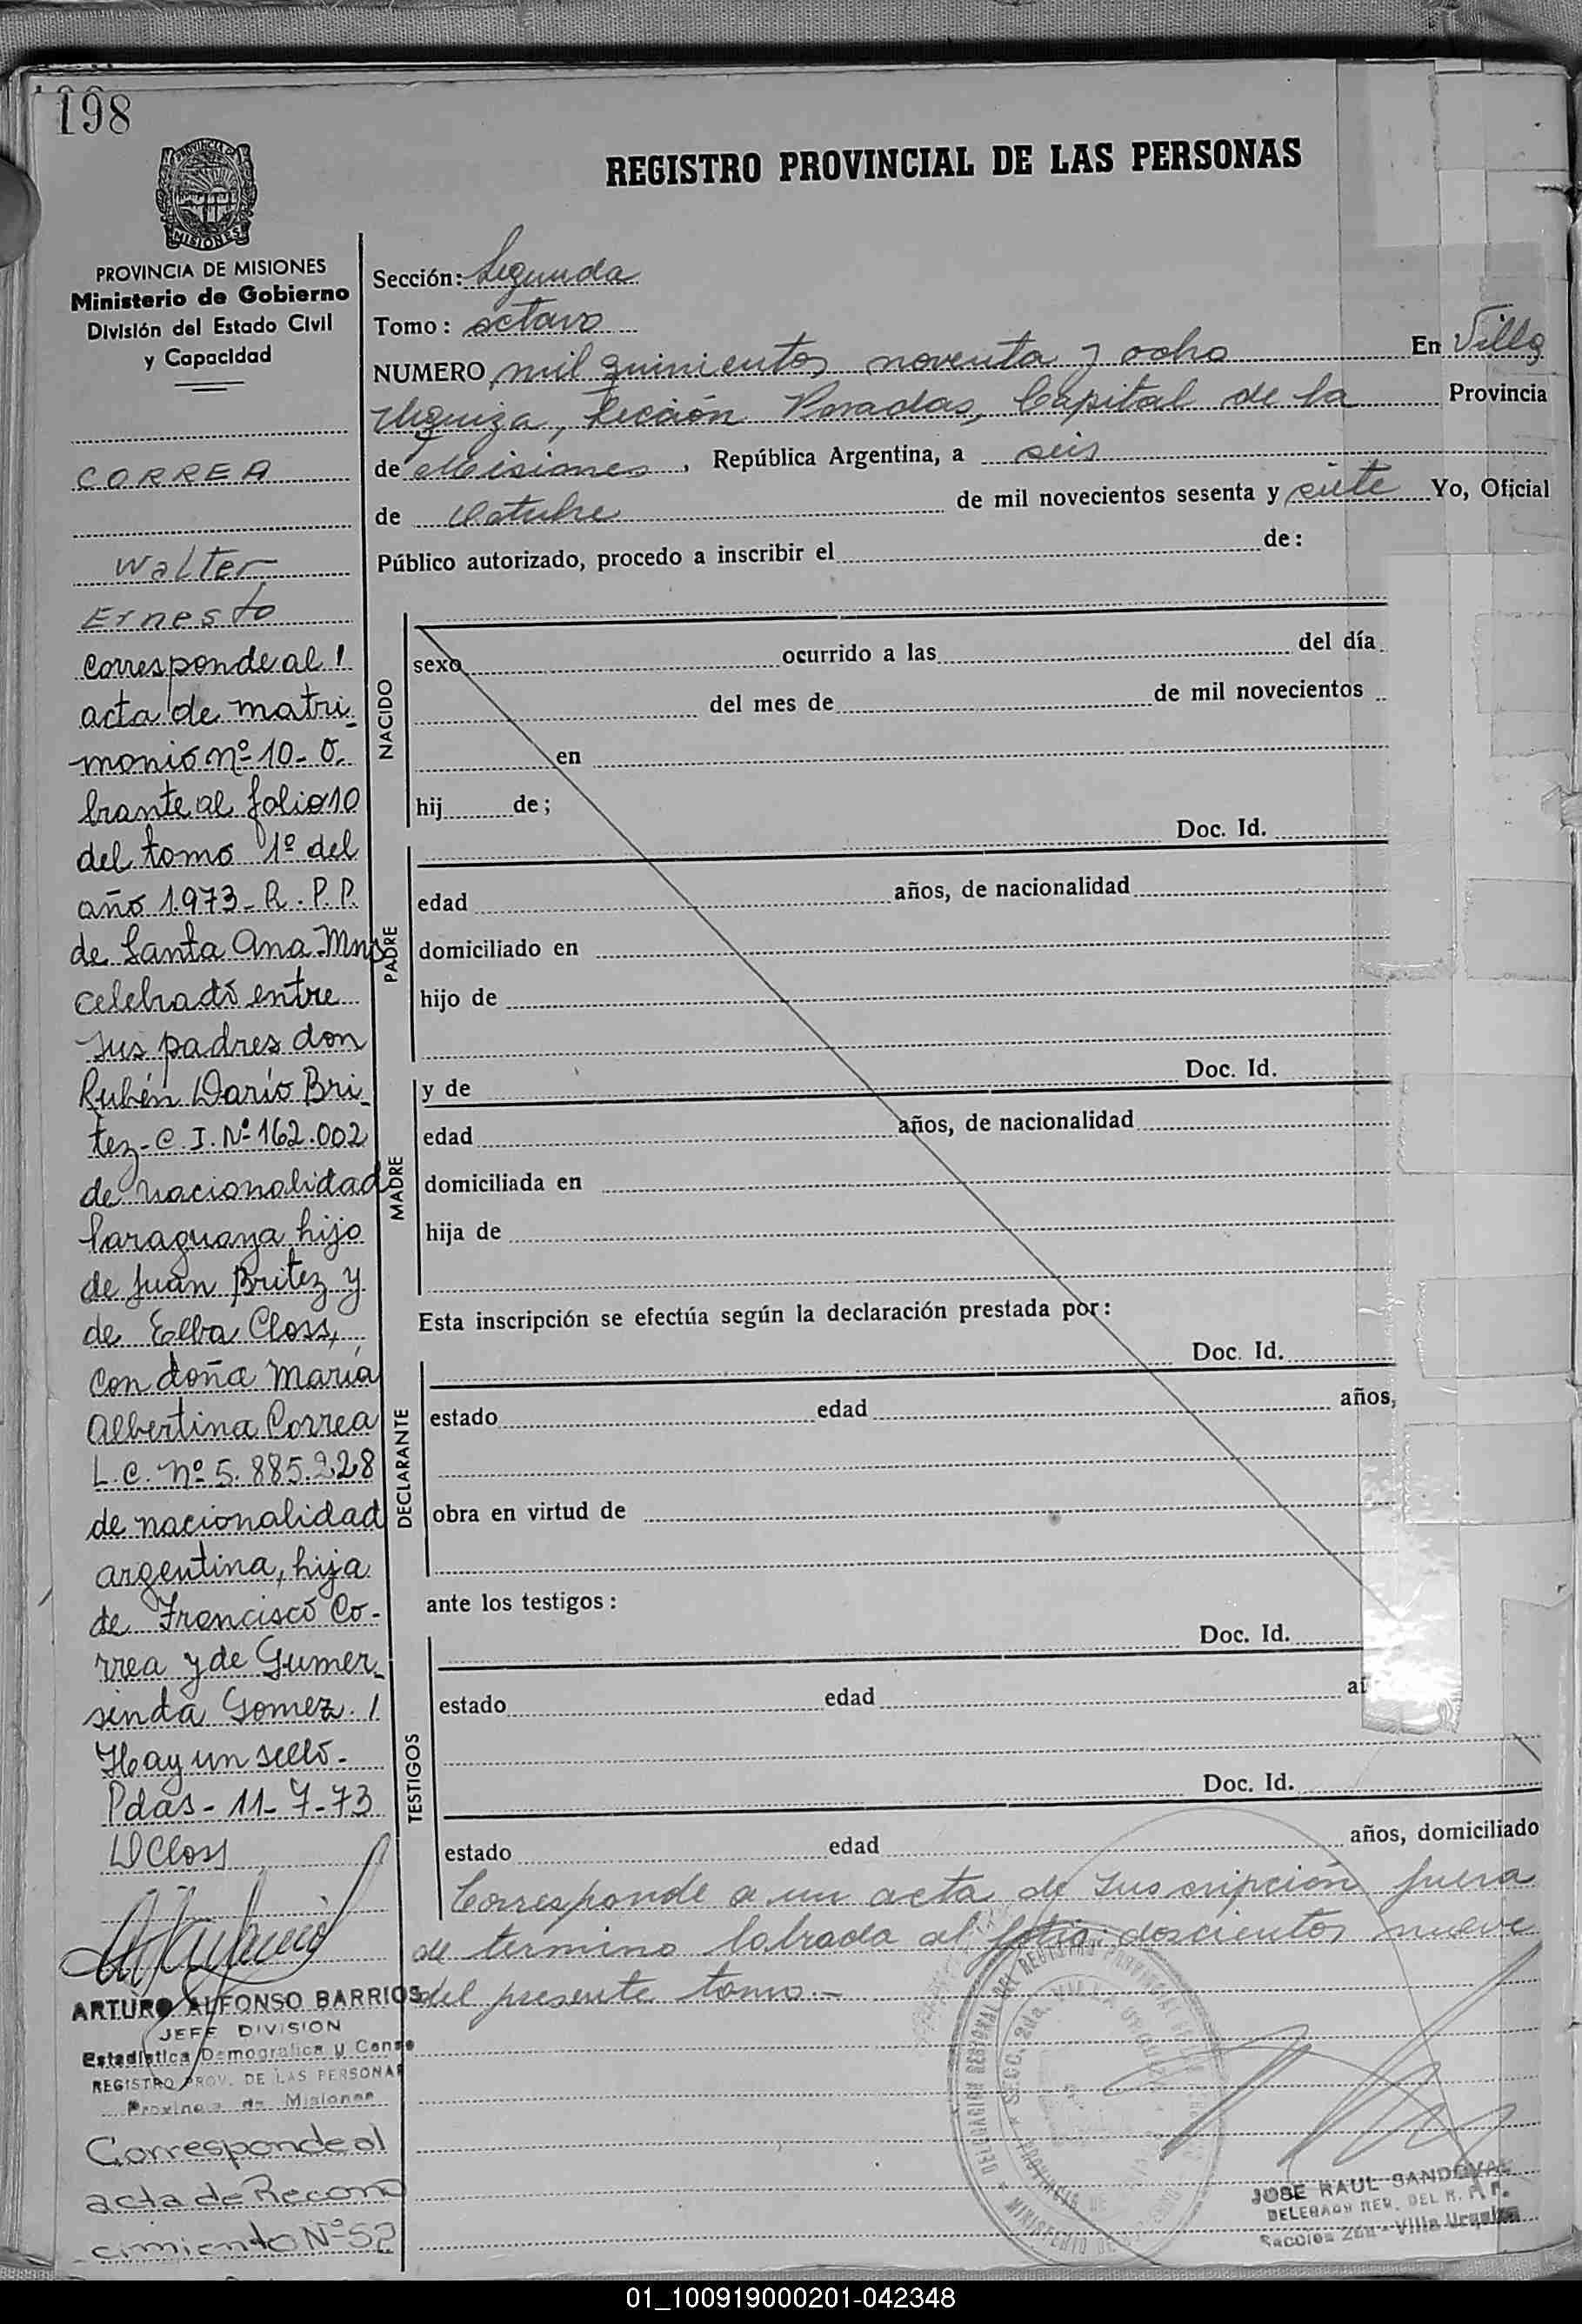 198
REGISTRO PROVINCIAL DE LAS PERSONAS
PROVINCIA DE MISIONES
Ministerio de Gobierno
División del Estado Civil
y Capacidad
CORREA
Walter
Ernesto
Corresponde al
acta de matri-
monio nº 10-O.
brante al folio 10
del tomo 1º del
año 1973-R.P.P.
de Santa Ana-Mns
celebrado entre
sus padres don
Rubén Darío Bri-
tez-C.I.Nº 162.002
de nacionalidad
Paraguaya hijo
de Juan Britez y
de Elba Closs,
con doña María
Albertina Correa
L.C. nº 5.885.228
de nacionalidad
argentina, hija
de Francisco Co-
rrea y de Gumer-
sinda Gomez.
Hay un sello.
Pdas-11-7-73
DCloss
ARTURO ALFONSO BARRIOS
JEFE DIVISION
Estadistica Demografica y Censo
REGISTRO PROV. DE LAS PERSONAS
Provincia de Misiones
Corresponde al
acta de Recono
cimiento Nº 52
Sección: Segunda
Tomo: octavo
NUMERO mil quinientos noventa y ocho En Villa
Urquiza, Sección Posadas, Capital de la Provincia
de Misiones, República Argentina, a seis
de Octubre de mil novecientos sesenta y siete Yo, Oficial
Público autorizado, procedo a inscribir el de:
NACIDO
sexo ocurrido a las del día
del mes de de mil novecientos
en
hij de;
Doc. Id.
PADRE
edad años, de nacionalidad
domiciliado en
hijo de
MADRE
y de Doc. Id.
edad años, de nacionalidad
domiciliada en
hija de
Esta inscripción se efectúa según la declaración prestada por:
Doc. Id.
DECLARANTE
estado edad años,
obra en virtud de
ante los testigos:
TESTIGOS
Doc. Id.
estado edad
Doc. Id.
estado edad años, domiciliado
Corresponde a un acta de Inscripción fuera
de termino labrada al folio doscientos nueve
del presente tomo.-
DELEGACION REGIONAL DEL REGISTRO PROVINCIAL DE LAS
SECC. 2da. VILLA URQUIZA
PROVINCIA DE
MINISTERIO DE
JOSE RAUL SANDOVAL
DELEGADO REG. DEL R. P. P.
Sección 2da - Villa Urquiza
01_100919000201-042348